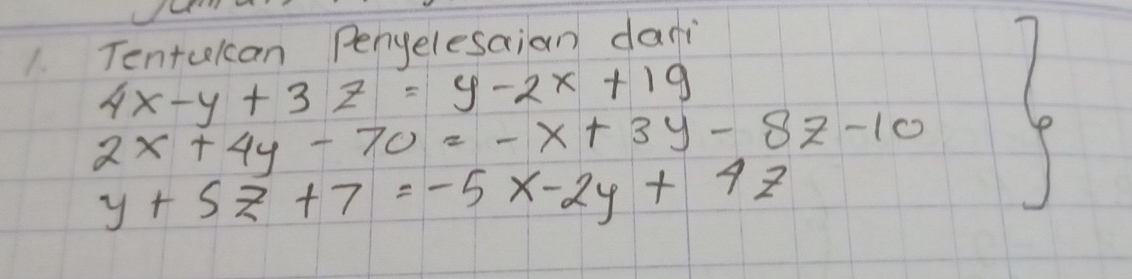 1. Tentukan Penyelesaian dari
4x - y + 3z = y - 2x + 19
2x + 4y - 70 = -x + 3y - 8z - 10
y + 5z + 7 = -5x - 2y + 4z